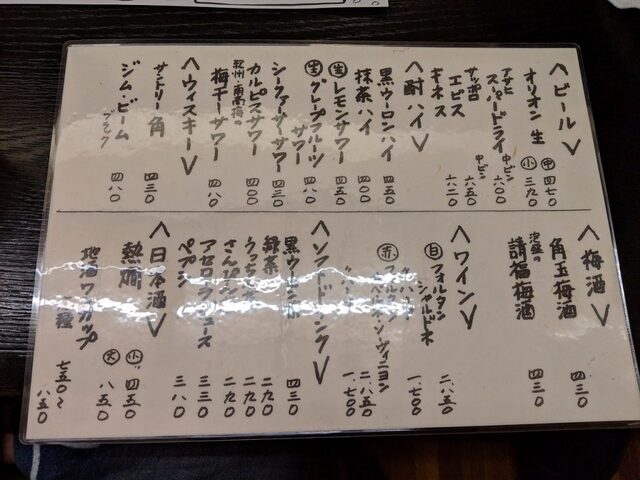 〈ビール〉
オリオン生 ㊥ 四七〇
㊙小 三九〇
アサヒ スーパードライ 中ビン 六〇〇
サッポロ エビス 中ビン 六五〇
ギネス 六二〇
〈酎ハイ〉
黒ウーロンハイ 四五〇
抹茶ハイ 四〇〇
生レモンサワー 四五〇
生グレープフルーツサワー 四八〇
シークァーサーサワー 四三〇
カルピスサワー 四〇〇
紀州・南高梅の 梅干サワー 四八〇
〈ウィスキー〉
サントリー角 四三〇
ジム・ビーム ブラック 四八〇
〈梅酒〉
角玉梅酒 四三〇
泡盛の 請福梅酒 四三〇
〈ワイン〉
白 フォルタン シャルドネ 二、八五〇
一、七〇〇
赤
ソーヴィニヨン 二、八五〇
一、七〇〇
〈ソフトドリンク〉
黒ウーロン 四三〇
緑茶 二九〇
うっちん 二九〇
さんぴん 二九〇
アセロラジュース 三三〇
ペプシ 三八〇
〈日本酒〉
熱燗 小 四五〇
大 八五〇
地酒ワンカップ
種 七五〇〜
八五〇